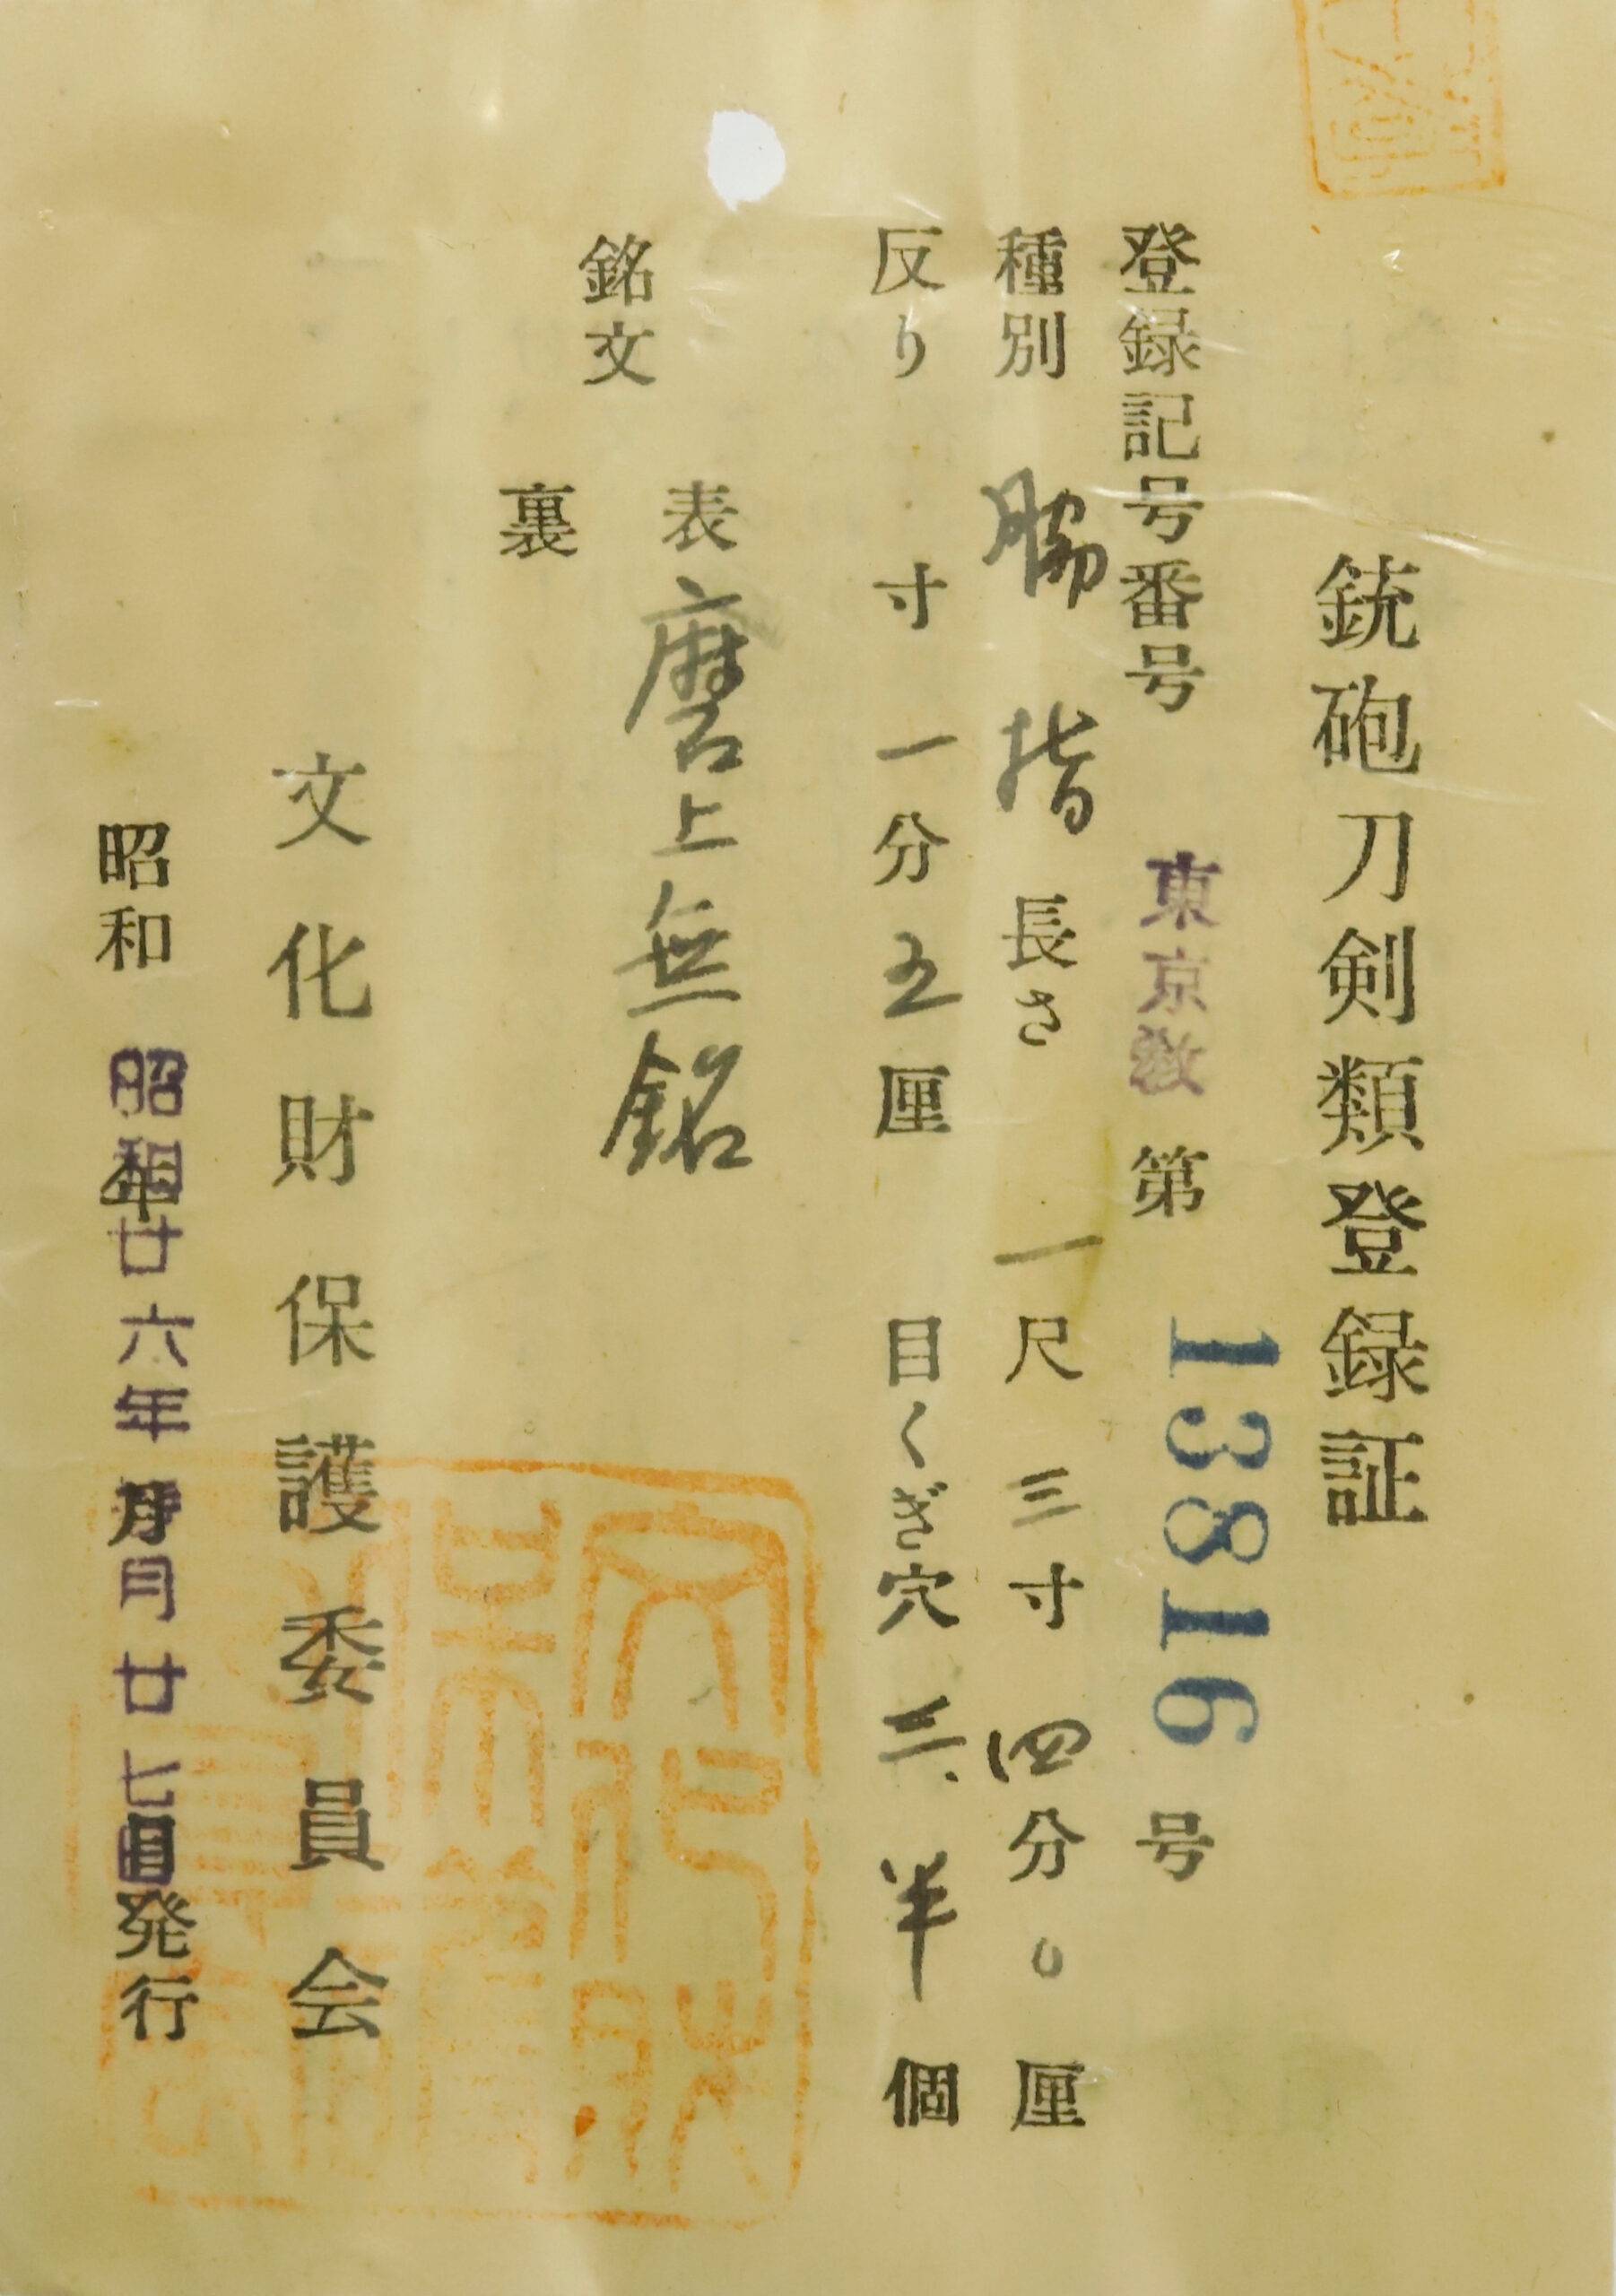 銃砲刀剣類登録証
登録記号番号 東京教 第 13816 号
種別 脇指 長さ 一尺三寸四分〇厘
反り 寸一分五厘 目くぎ穴 三半個
銘文
表 磨上無銘
裏
文化財保護委員会
昭和 昭和廿六年 月廿七日発行